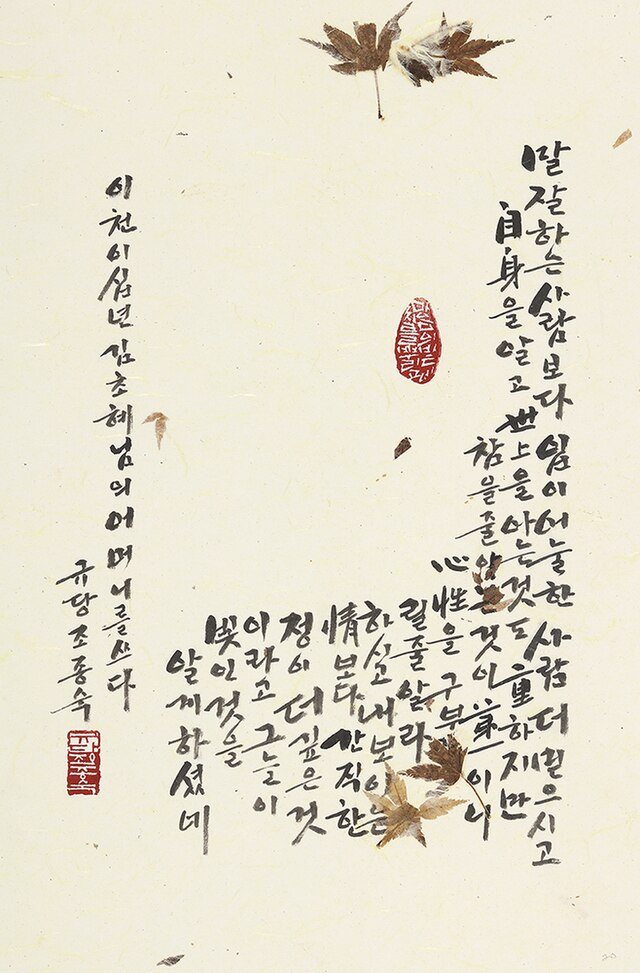 말 잘하는 사람보다 입이 어눌한 사람 더 믿으시고
自身을 알고 世上을 아는 것도 重하지만
참을 줄 아는 것이 第一이니
心性을 구부
릴 줄 알라
하시고 내보이는
情보다 간직한
정이 더 깊은 것
이라고 그늘이
빛인 것을
알게 하셨네
이천이십년 김초혜님의 어머니를 쓰다
규당 조종숙